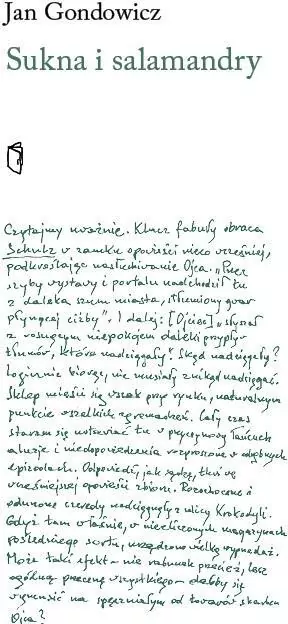 Jan Gondowicz
Sukna i salamandry
Czytajmy uważnie. Klucz fabuły obraca
Schulz w zamku opowieści nieco wcześniej,
podkreślając nasłuchiwanie Ojca. „Przez
szyby wystawy i portalu nadchodził tu
z daleka szum miasta, stłumiony gwar
płynącej ciżby”. I dalej: [Ojciec] „słyszał
z rosnącym niepokojem daleki przypływ
tłumów, które nadciągały”. Skąd nadciągały?
Logicznie biorąc, nie musiały znikąd nadciągać.
Sklep mieści się wszak przy rynku, naturalnym
punkcie wszelkich zgromadzeń. Cały czas
staram się wstawiać tu w przyczynowy łańcuch
aluzje i niedopowiedzenia rozproszone w odrębnych
epizodach. Odpowiedź, jak sądzę, tkwi we
wcześniejszej opowieści zbioru. Rozochocone i
odurzone czeredy nadciągnęły z ulicy Krokodyli.
Gdyż tam właśnie, w nielicznych magazynach
pośledniego sortu, urządzono wielką wyprzedaż.
Może taki efekt – nie rabunek przecież, lecz
ogólną przecenę wszystkiego – dałoby się
wymusić na spęczniałym od towarów skarbcu
Ojca?